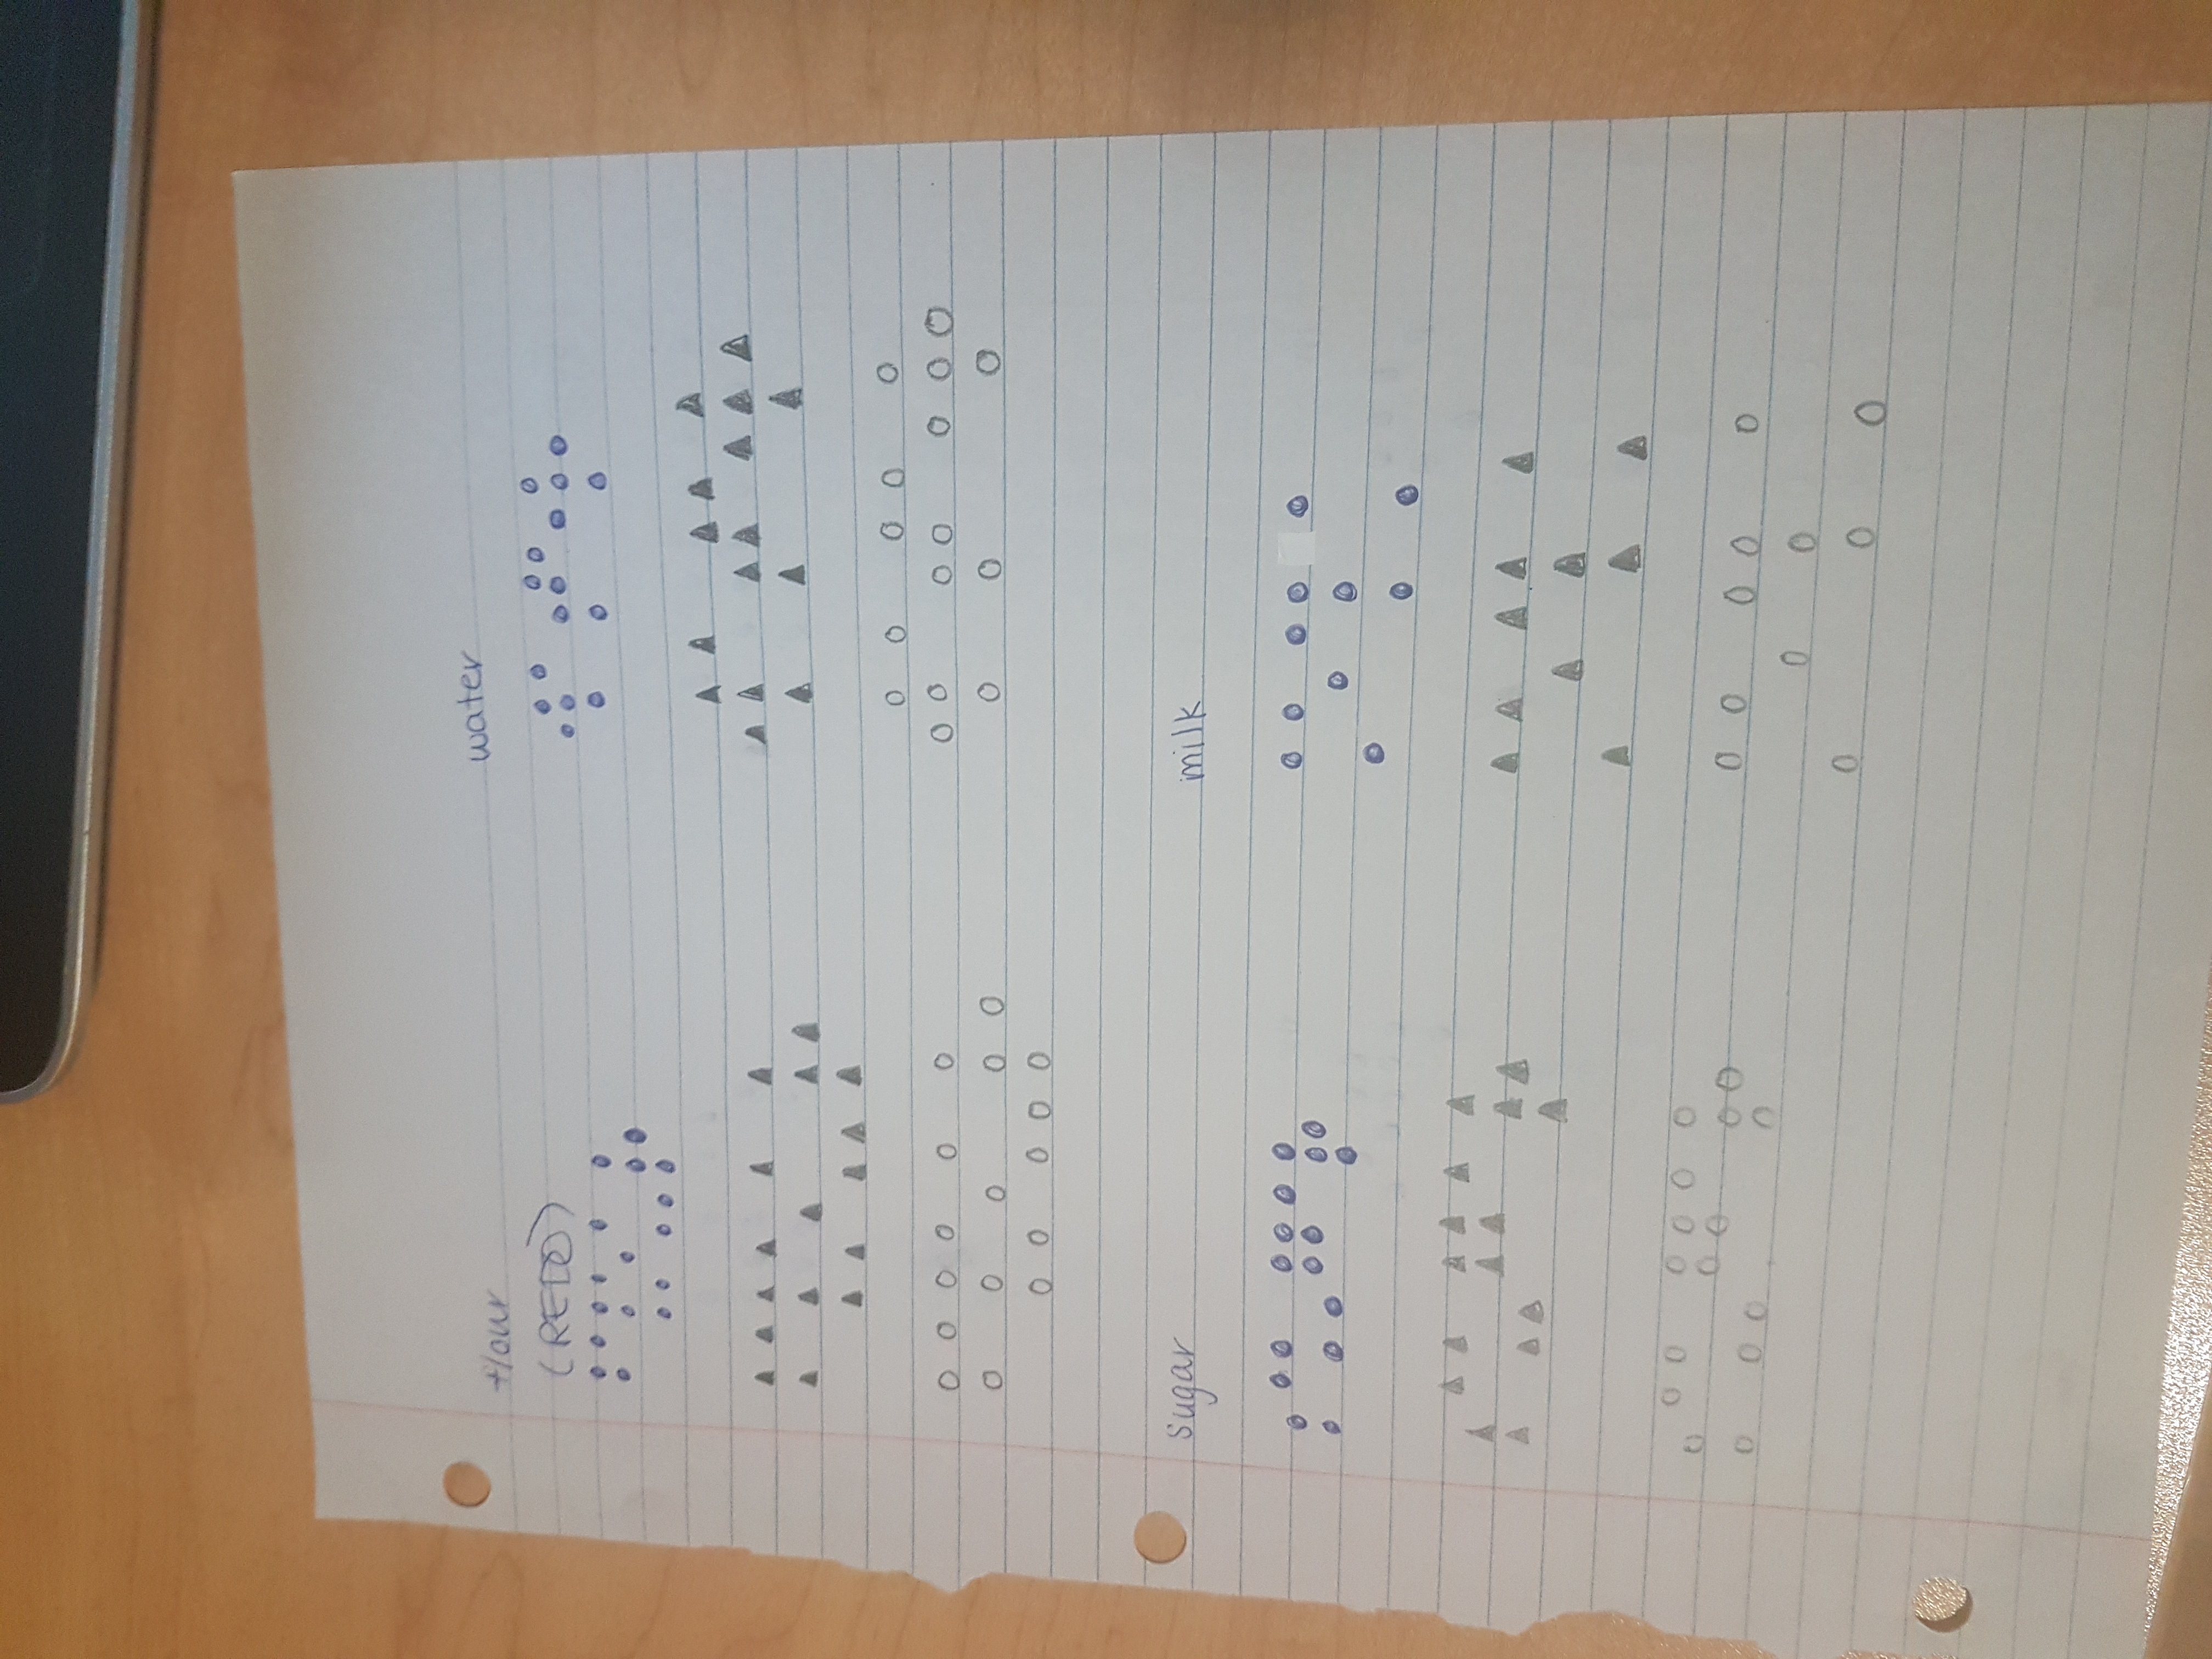 flour
(REDO)
water
sugar
milk